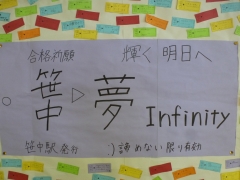 合格祈願 輝く 明日へ
笹中 ▷ 夢 Infinity
笹中駅発行 諦めない限り有効